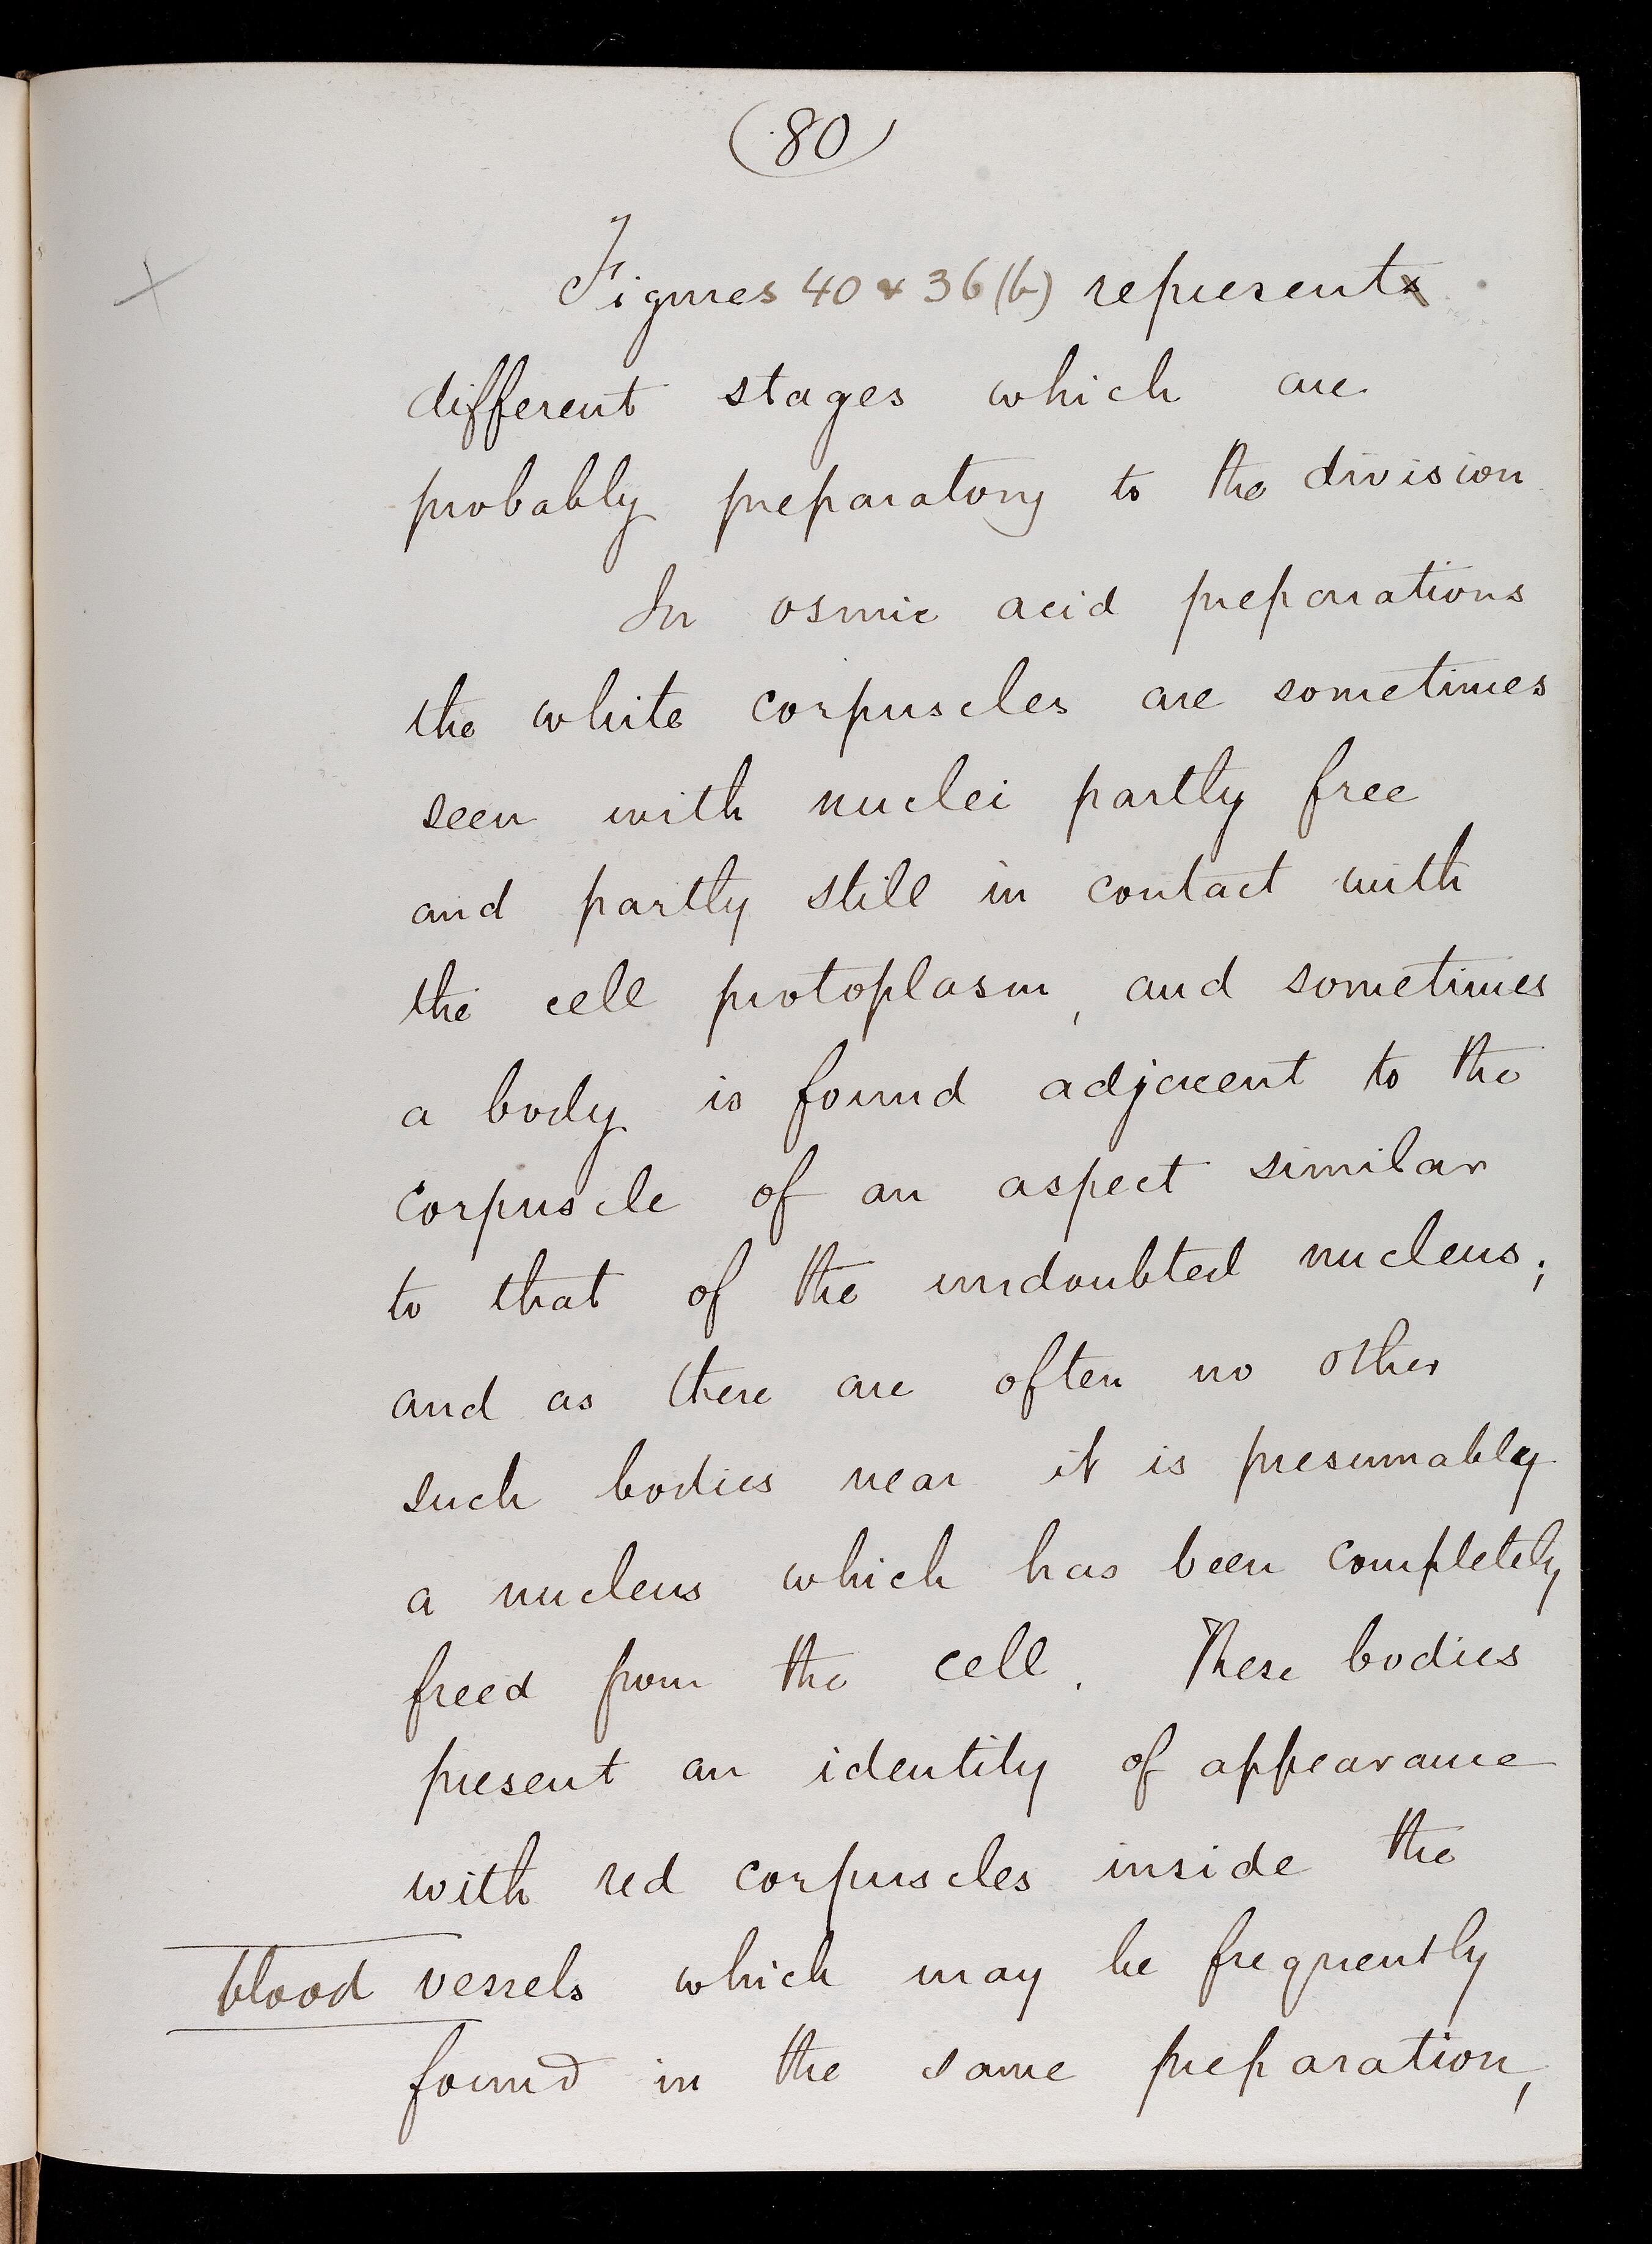 (80)
Figures 40 & 36 (b) represent
different stages which are
probably preparatory to the division
In osmic acid preparations
the white corpuscles are sometimes
seen with nuclei partly free
and partly still in contact with
the cell protoplasm, and sometimes
a body is found adjacent to the
corpuscle of an aspect similar
to that of the undoubted nucleus;
and as there are often no other
such bodies near it is presumably
a nucleus which has been completely
freed from the cell. These bodies
present an identity of appearance
with red corpuscles inside the
blood vessels which may be frequently
found in the same preparation,